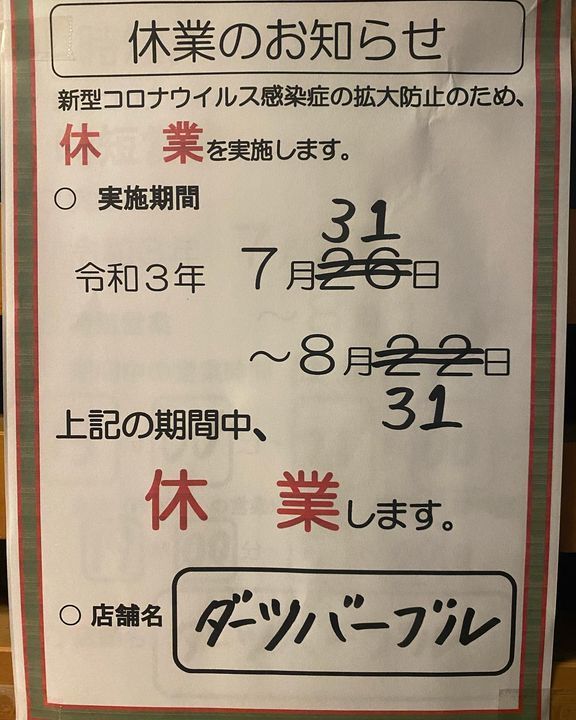 休業のお知らせ
新型コロナウイルス感染症の拡大防止のため、
休　業を実施します。
○　実施期間
31
令和３年　７月26日
～８月22日
31
上記の期間中、
休　業します。
○ 店舗名　ダーツバーブル